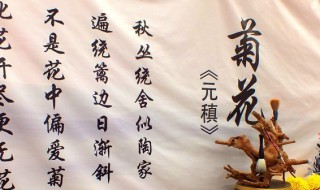 菊花
《元稹》
秋丛绕舍似陶家
遍绕篱边日渐斜
不是花中偏爱菊
此花开尽更无花